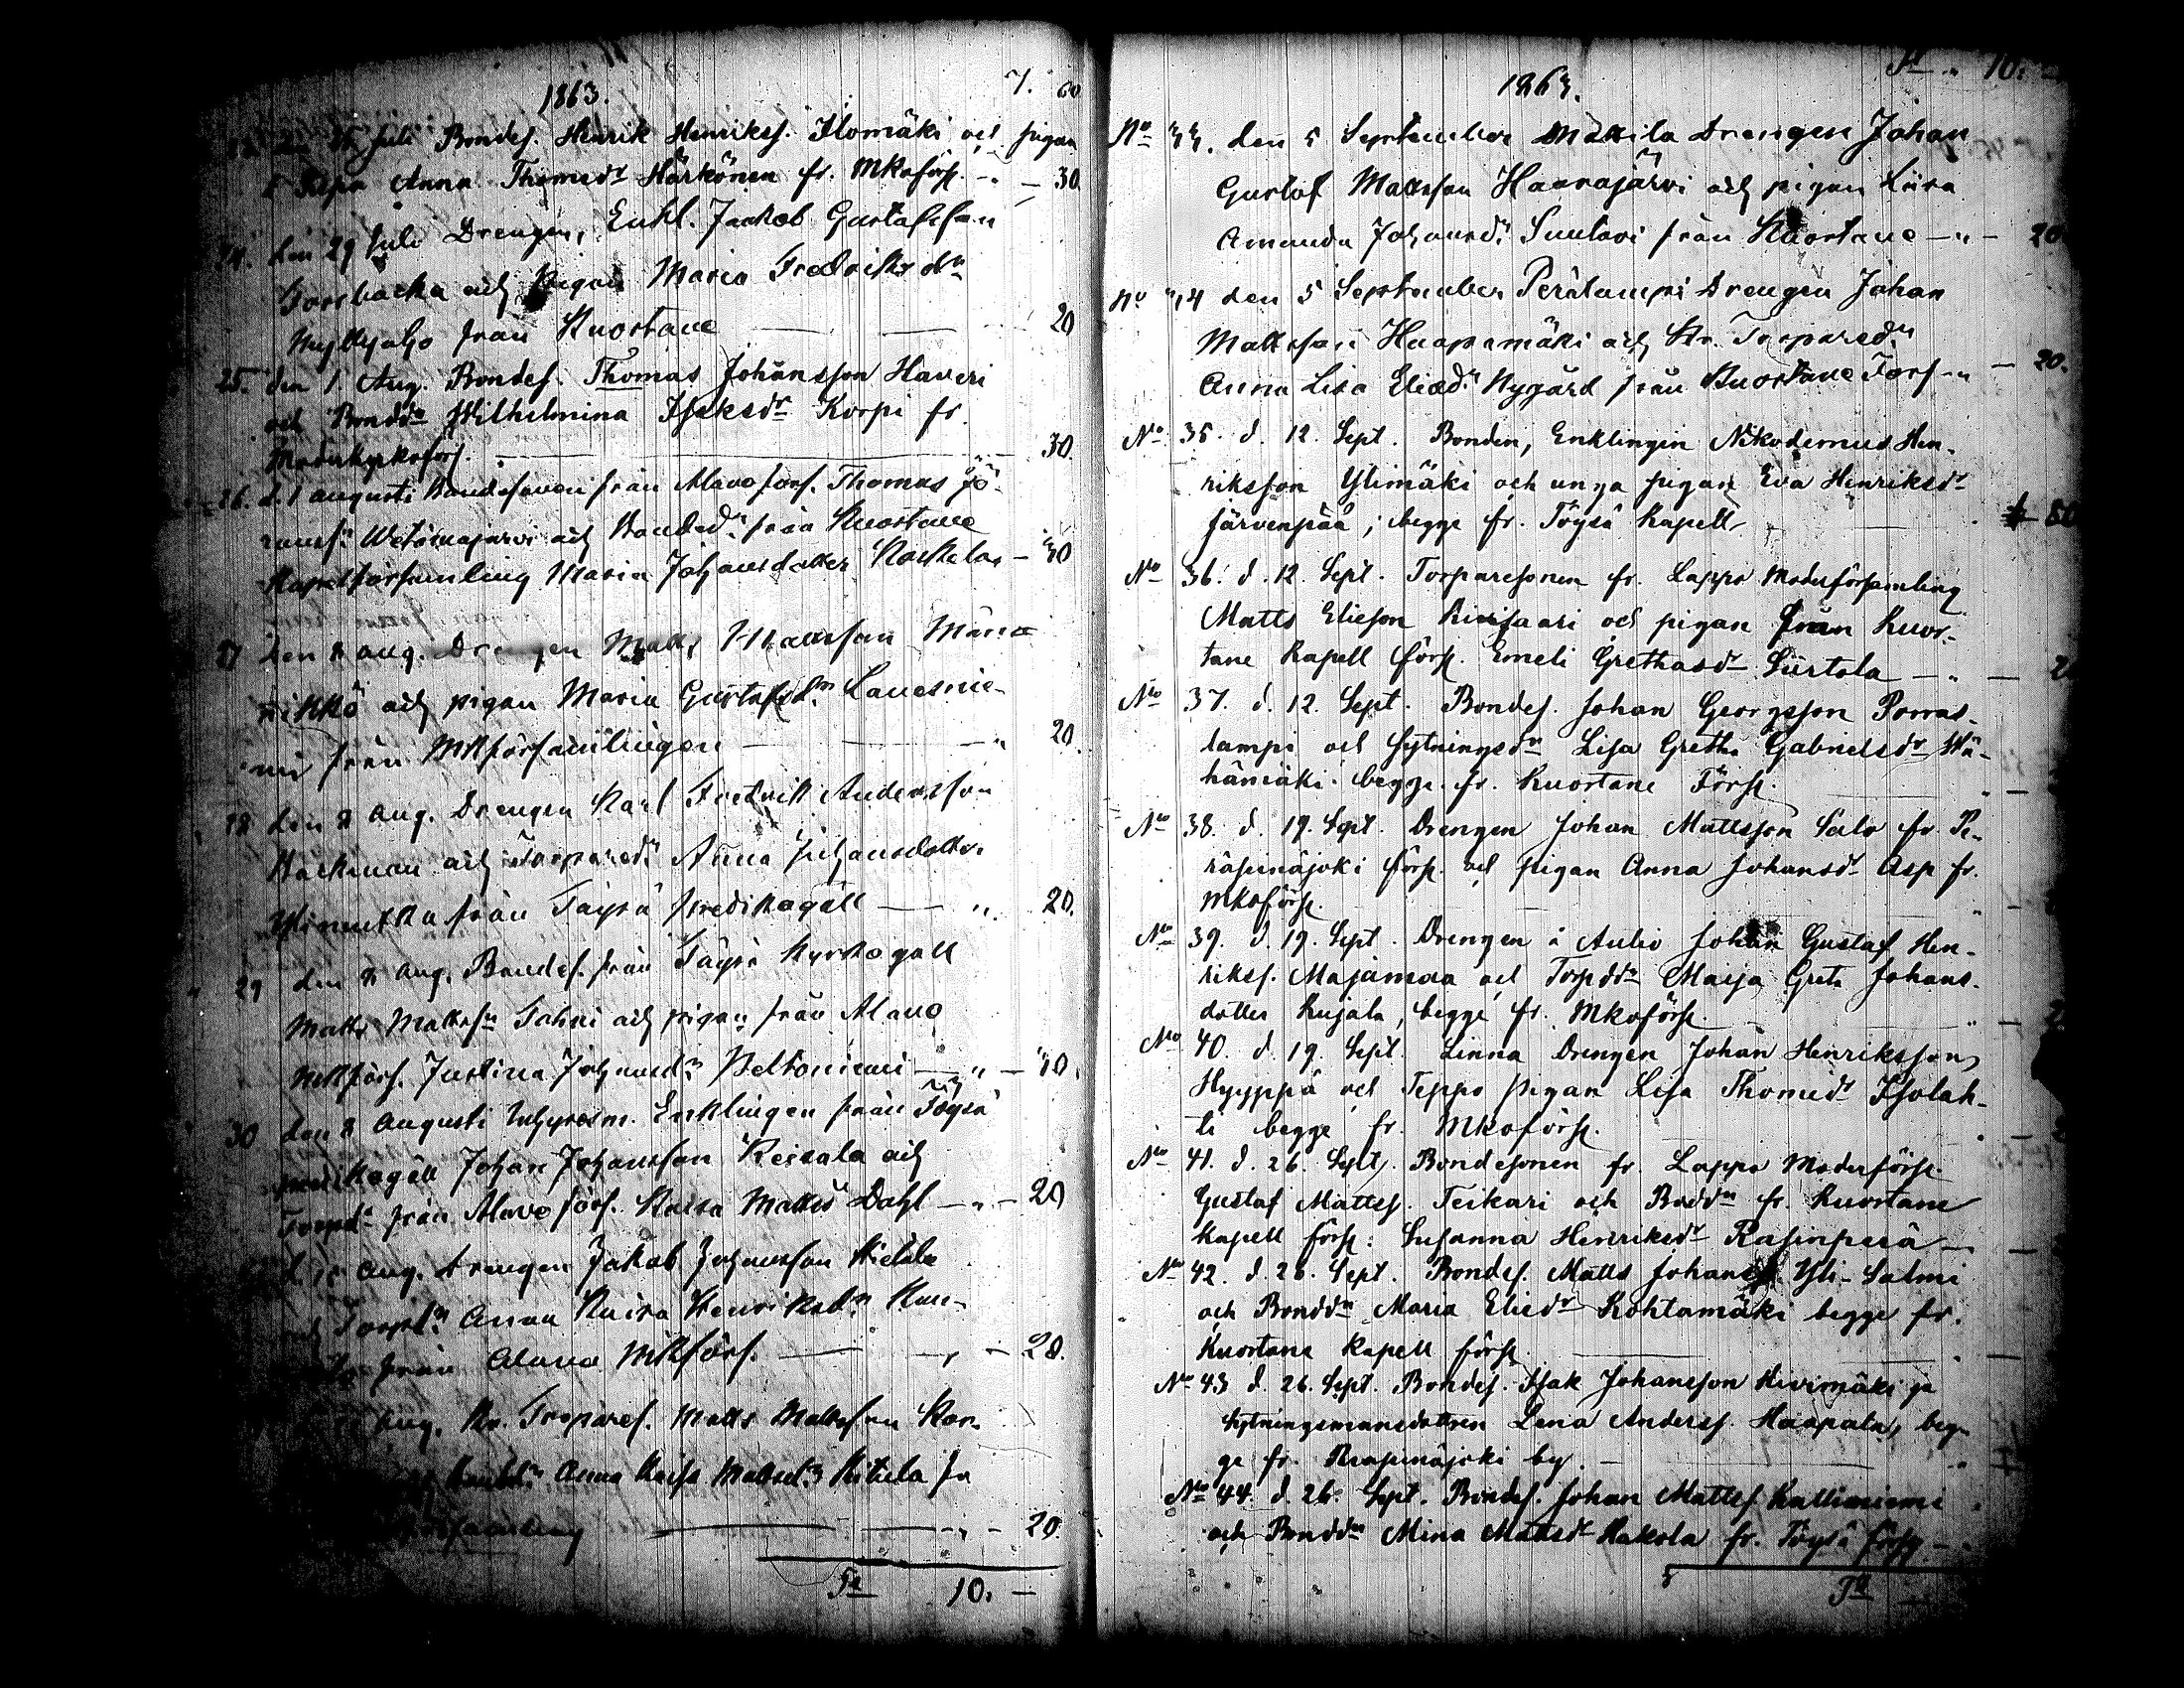 1863.
7. 60
Juli Bondes. Henrik Henrikss. Ilomäki och pigan
Anna Thomasdr Härkönen fr. Mkoförs. — 30.
24. den 29 Juli Drengen, Enkl. Jackob Gustafsson
Forsbacka och Pigan Maria Fredriks dr
Myllyaho från Kuortane — 20
25. den 1. Aug. Bondes. Thomas Johansson Haveri
och Bonddr Wilhelmina Isaksdr Korpi fr.
Moderkyrkoförs. — 30.
26. d. 1 augusti Bondesonen från Alavo förs. Thomas Jo-
och Bondedr från Kuortane
Kapellförsamling Maria Johansdotter Koskela — 30
27 den 8 aug. Drengen Matts Mattsson Männ
nikkö och pigan Maria Gustafsdr Lauesnie-
mi från Mkförsamlingen — 20.
28 den 8 aug. Drengen Karl Fredrik Andersson
Backman och Torparedr Anna Johansdotter
från Töysä predikogäll — 20.
29 den 8 aug. Bondes. från Töysä Kyrkogäll
Matts Mattsson och pigan från Alavo
Mkförs. Justina Johansdr Peltoniemi — 30.
30 den 8 Augusti Enklingen från Töysä
predikogäll Johan Johansson Keisala och
Torpdr från Alavo förs. Kaisa Mattsdr Dahl — 20
d. 15 aug. drengen Jakob Johansson Hietala
Torpdr Anna Kaisa Henriksdr Kan-
från Alavo Mkförs. — 20.
Aug. Torpares. Matts Mattsson Kor-
Anna Kaisa Mattsdr fr
församling — 20.
Sa 10. —
Sa „ 10. —
1863.
No 33. den 5 September Mattila Drengen Johan
Gustaf Mattsson Haarajärvi och pigan Kaisa
Amanda Johansdr Suutari från Kuortane — 20
No 34 den 5 September Perälampi Drengen Johan
Mattsson Haapamäki och Torparedr
Anna Lisa Eliædr Nygård från Kuortane Förs — 20.
No 35. d. 12. Sept. Bonden, Enklingen Nikodemus Hen-
riksson Ylimäki och unga pigan Eva Henriksdr
Järvenpää, begge fr. Töysä Kapell
No 36. d. 12. Sept. Torparesonen fr. Lappo Moderförsamling
Matts Elieson Kivisaari och pigan från Kuor-
tane Kapell förs. Emeli Grethasdr Siirtola —
No 37. d. 12. Sept. Bondes. Johan Georgsson Porras-
lampi och Sytningsdr Lisa Gretha Gabrielsdr Wä-
hämäki: begge fr. Kuortane Förs.
No 38. d. 19. Sept. Drengen Johan Mattsson Salo fr. Pe-
räseinäjoki förs. och pigan Anna Johansdr Asp fr.
Mkoförs.
No 39. d. 19. Sept. Drengen å Aulio Johan Gustaf Hen-
rikss. Majamaa och Torpddr Maija Greta Johans-
dotter Kujala, begge fr. Mkoförs.
No 40. d. 19. Sept. Linna Drengen Johan Henriksson
Hyyppä och Teppo pigan Lisa Thomædr Isolah-
ti begge fr. Mkoförs.
No 41. d. 26. Sept. Bondesonen fr. Lappo Moderförs.
Gustaf Mattss. Teikari och Bondddr fr. Kuortane
Kapell förs. Susanna Henriksdr Rasinperä —
No 42. d. 26. Sept. Bondes. Matts Johanss. Yli-Salmi
och Bondddr Maria Eliedr Kohtamäki begge fr.
Kuortane Kapell förs.
No 43 d. 26. Sept. Bondes. Isak Johansson Kivimäki ja
Sytningsmansdottren Lena Anderss. Haapala, beg-
ge fr. by.
No 44. d. 26. Sept. Bondes. Johan Mattss. Kallioniemi
och Bondddr Mina Mattsdr Hakola fr. Töysä förs.
Sa